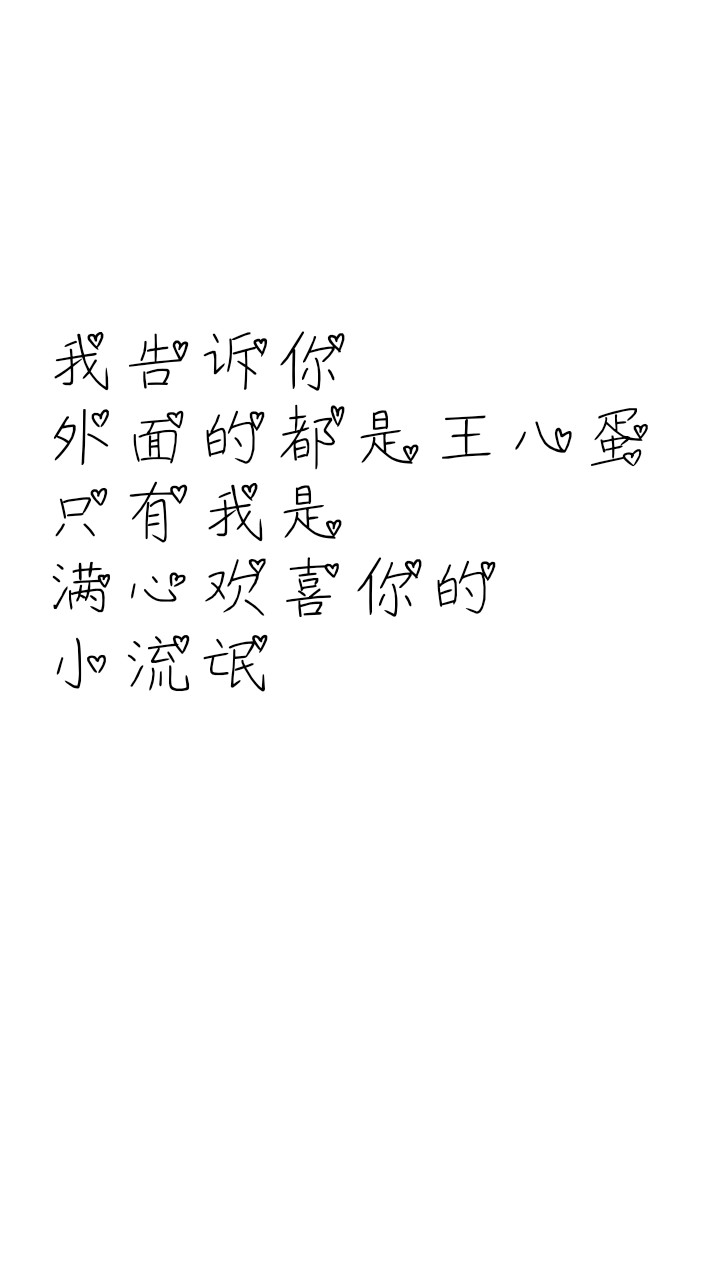 我告诉你
外面的都是王八蛋
只有我是
满心欢喜你的
小流氓